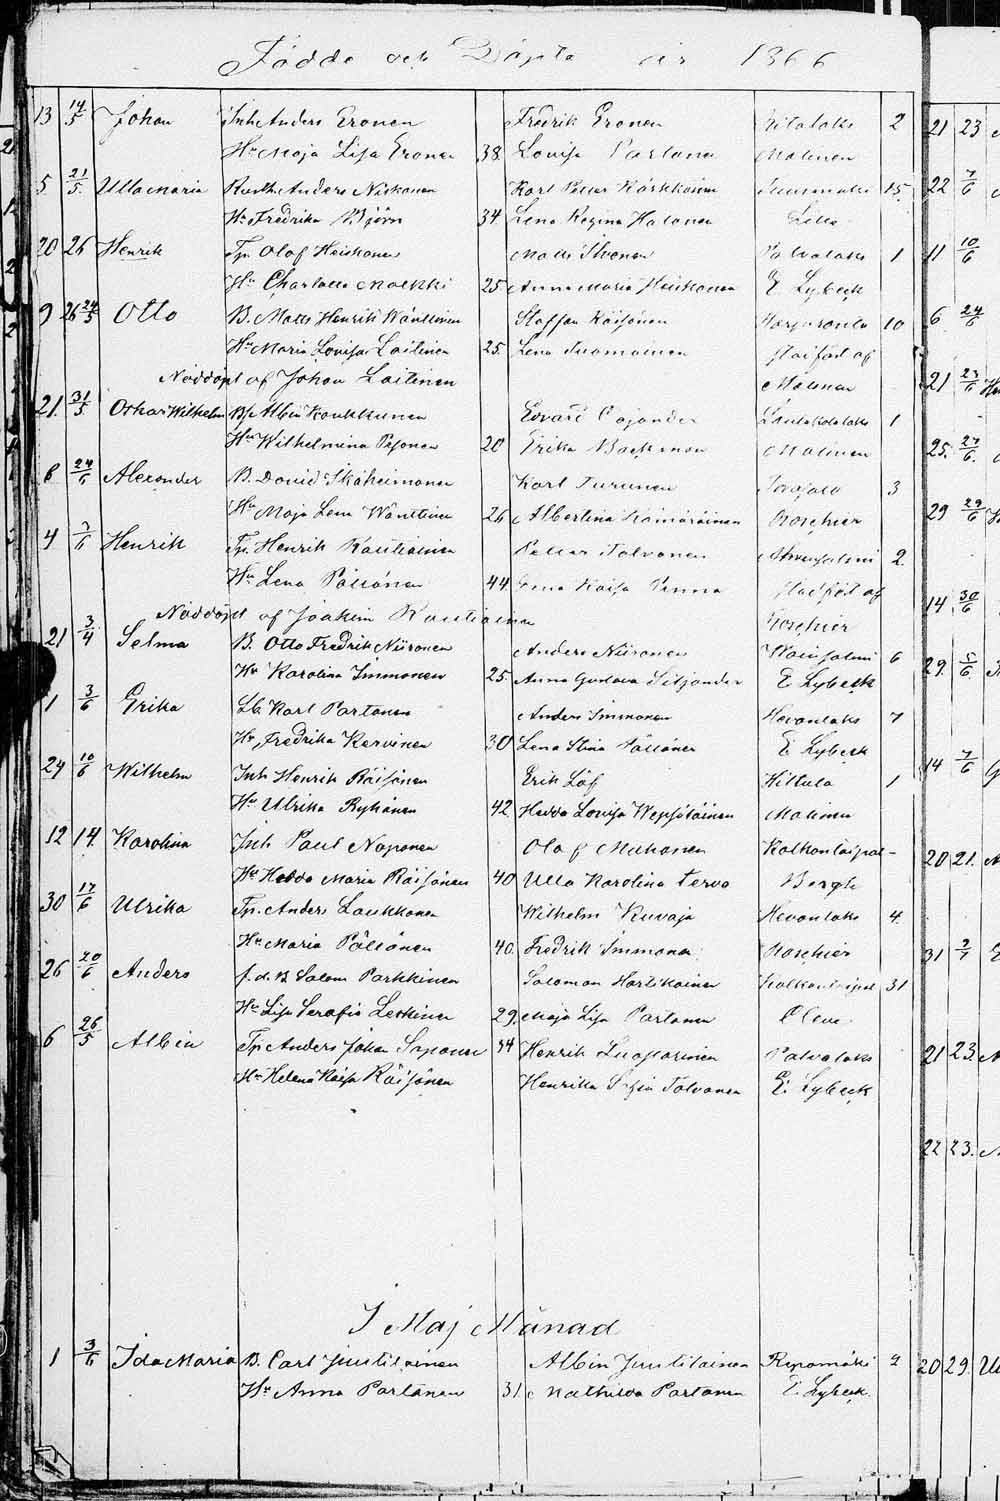 Födde och Döpte år 1866
13 14/5 Johan Inh Anders Eronen Fredrik Eronen 2
Hu Maja Lisa Eronen 38 Lovisa Partanen Malmen
5 21/5 Ulla Maria Anders Niskanen Karl Petter Kärkkäinen 15
Hu Fredrika Björn 34 Lena Regina Halonen
20 26 Henrik Tp. Olof Heiskanen Matts Ihonen Palvalaks 1
Hu Charlotta Malkki 25 Anna Maria Heiskanen E Lybeck
9 26 24/5 Otto B. Matts Henrik Wänttinen Staffan Räisänen 10
Hu Maria Lovisa Laitinen 25. Lena Tuomainen stadfäst af
Nöddöpt af Johan Laitinen Malmen
21. 31/5 Oskar Wilhelm Bs Albin Koukkunen Edvard Cajander Lautakotalaks 1
Hu Wilhelmina Pesonen 20 Erika Backman Malmen
8 24/6 Alexander B. David Ikäheimonen Karl Turunen 3
Hu Maja Lena Wänttinen 26 Albertina Hämäräinen Roschier
4 7/6 Henrik Tp. Henrik Rautiainen Petter Tolvanen Ahvensalmi 2.
Hu Lena Pällönen 44 Kaisa Pinna stadfäst af
Nöddöpt af Joakim Rautiainen Roschier
21 3/4 Selma B. Otto Fredrik Niironen Anders Niironen Wainsalmi 6
Hu Karolina Immonen 25. Anna Gustava Siljander E Lybeck
1 3/6 Erika Lb. Karl Partanen Anders Immonen Hevonlaks 7
Hu Fredrika Kervinen 30 Lena Stina Pällönen E. Lybeck
24 10/6 Wilhelm Inh Henrik Räisänen Erik Löf Kiltula 1
Hu Ulrika Rykänen 42 Hedda Lovisa Wepsäläinen Malmen
12 14. Karolina Inh Paul Noponen Olof Makonen Kolkonlaipal –
Hu Hedda Maria Räisänen 40 Ulla Karolina Tervo Bergh
30 17/6 Ulrika Tp. Anders Laukkanen Wilhelm Kuvaja Hevonlaks 4.
Hu Maria Pällönen 40. Fredrik Immonen Roschier
26 20/6 Anders f.d. B Salom Parkkinen Salomon Hartikainen Kolkonlaipal 31
Hu Lisa Serafia Leskinen 29. Maja Lisa Partanen Cleve
6 26/5 Albin Tp. Anders Johan Saponen 44 Henrik Luostarinen Palvalaks
Hu Helena Kaisa Räisänen Henrika Sofia Tolvanen E. Lybeck
I Maj Månad
1 3/6 Ida Maria B. Carl Juutilainen Albin Juutilainen Repomäki 2
Hu Anna Partanen 31. Mathilda Partanen E. Lybeck.
21 23
22 7/6
11 10/6
6. 24/6
21 23/6
25. 27/6.
29 29/6
14 30/6
29. 5/6
14 7/6
20 21.
31 2/7
21 23.
22 23.
20 29.